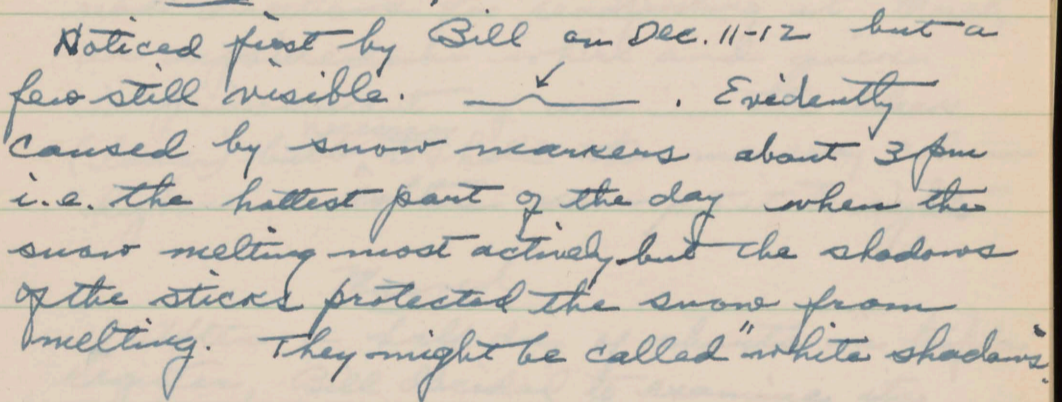 Noticed first by Bill on Dec. 11-12 but a
few still visible. . Evidently
caused by snow markers about 3 pm
i.e. the hottest part of the day when the
snow melting most actively but the shadows
of the sticks protected the snow from
melting. They might be called "white shadows".